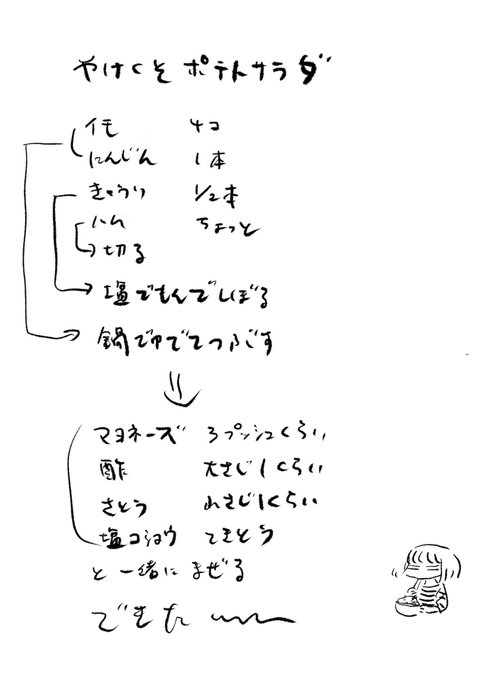 やけくそ ポテトサラダ
イモ 4コ
にんじん 1本
きゅうり 1/2本
ハム ちょっと
切る
塩でもんでしぼる
鍋でゆでてつぶす
マヨネーズ 3プッシュくらい
酢 大さじ1くらい
さとう 小さじ1くらい
塩コショウ てきとう
と一緒にまぜる
できた〜〜